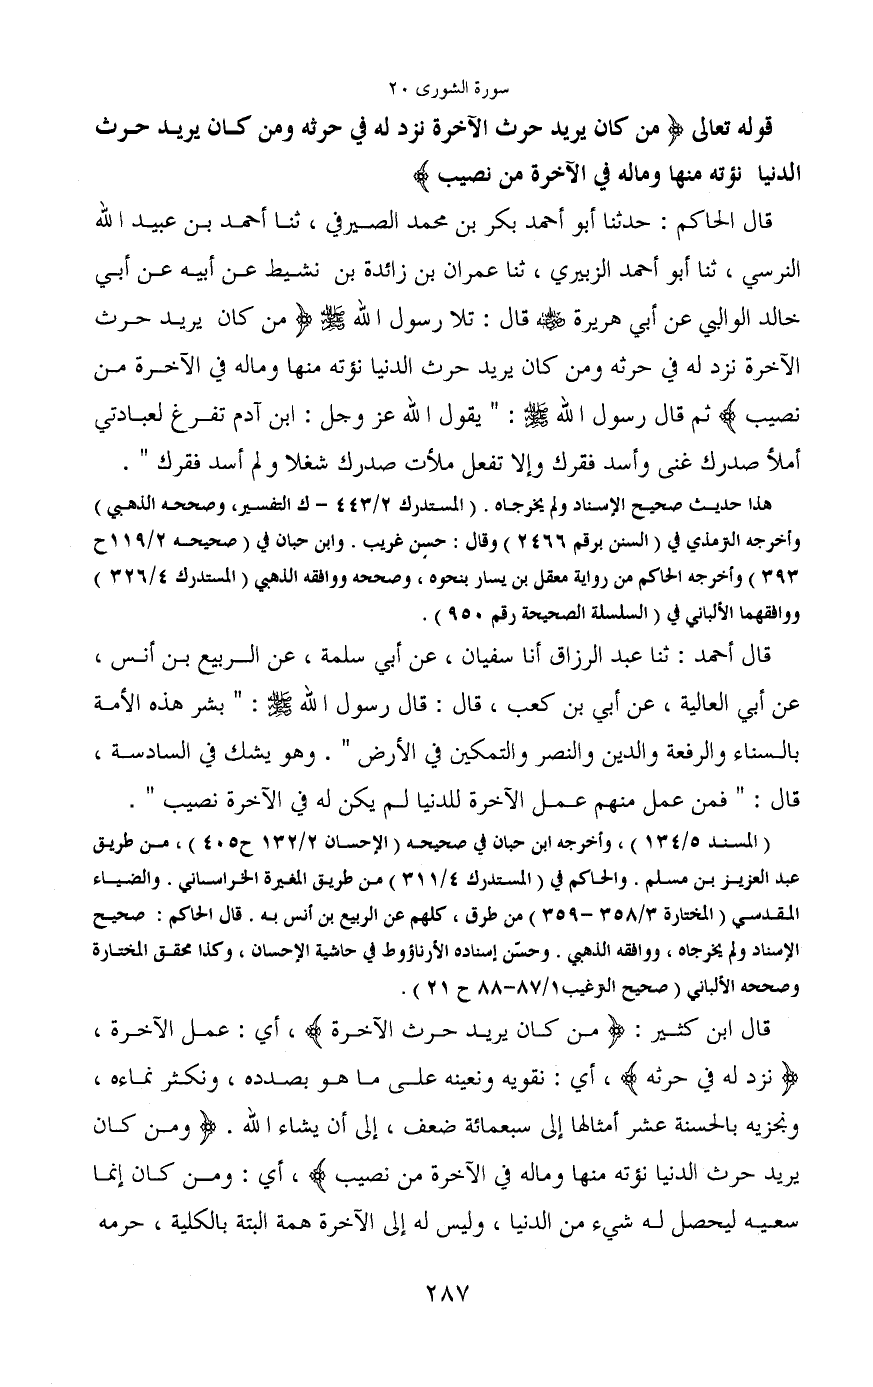 سورة الشورى ٢٠
قوله تعالى ﴿ من كان يريد حرث الآخرة نزد له في حرثه ومن كان يريد حرث
الدنيا نؤته منها وماله في الآخرة من نصيب ﴾
قال الحاكم : حدثنا أبو أحمد بكر بن محمد الصيرفي ، ثنا أحمد بن عبيد الله
النرسي ، ثنا أبو أحمد الزبيري ، ثنا عمران بن زائدة بن نشيط عن أبيه عن أبي
خالد الوالبي عن أبي هريرة ﵁ قال : تلا رسول الله ﷺ ﴿ من كان يريد حرث
الآخرة نزد له في حرثه ومن كان يريد حرث الدنيا نؤته منها وماله في الآخرة من
نصيب ﴾ ثم قال رسول الله ﷺ : " يقول الله عز وجل : ابن آدم تفرغ لعبادتي
أملأ صدرك غنى وأسد فقرك وإلا تفعل ملأت صدرك شغلا ولم أسد فقرك " .
هذا حديث صحيح الإسناد ولم يخرجاه . ( المستدرك ٤٤٣/٢ - ك التفسير، وصححه الذهبي )
وأخرجه الترمذي في ( السنن برقم ٢٤٦٦ ) وقال : حسن غريب . وابن حبان في ( صحيحه ١١٩/٢ح
٣٩٣ ) وأخرجه الحاكم من رواية معقل بن يسار بنحوه ، وصححه ووافقه الذهبي ( المستدرك ٣٢٦/٤ )
ووافقهما الألباني في ( السلسلة الصحيحة رقم ٩٥٠ ) .
قال أحمد : ثنا عبد الرزاق أنا سفيان ، عن أبي سلمة ، عن الربيع بن أنس ،
عن أبي العالية ، عن أبي بن كعب ، قال : قال رسول الله ﷺ : " بشر هذه الأمة
بالسناء والرفعة والدين والنصر والتمكين في الأرض " . وهو يشك في السادسة ،
قال : " فمن عمل منهم عمل الآخرة للدنيا لم يكن له في الآخرة نصيب " .
( المسند ١٣٤/٥ ) ، وأخرجه ابن حبان في صحيحه ( الإحسان ١٣٢/٢ ح٤٠٥ ) ، من طريق
عبد العزيز بن مسلم . والحاكم في ( المستدرك ٣١١/٤ ) من طريق المغيرة الخراساني . والضياء
المقدسي ( المختارة ٣٥٨/٣ -٣٥٩ ) من طرق ، كلهم عن الربيع بن أنس به . قال الحاكم : صحيح
الإسناد ولم يخرجاه ، ووافقه الذهبي . وحسّن إسناده الأرناؤوط في حاشية الإحسان ، وكذا محقق المختارة
وصححه الألباني ( صحيح الترغيب ٨٧/١-٨٨ ح ٢١ ) .
قال ابن كثير : ﴿ من كان يريد حرث الآخرة ﴾ ، أي : عمل الآخرة ،
﴿ نزد له في حرثه ﴾ ، أي : نقويه ونعينه على ما هو بصدده ، ونكثر نماءه ،
ونجزيه بالحسنة عشر أمثالها إلى سبعمائة ضعف ، إلى أن يشاء الله . ﴿ ومن كان
يريد حرث الدنيا نؤته منها وماله في الآخرة من نصيب ﴾ ، أي : ومن كان إنما
سعيه ليحصل له شيء من الدنيا ، وليس له إلى الآخرة همة البتة بالكلية ، حرمه
٢٨٧